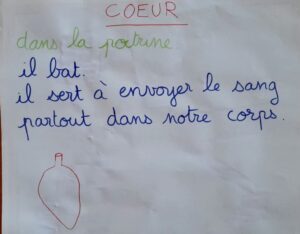 COEUR
dans la poitrine
il bat.
il sert à envoyer le sang
partout dans notre corps.